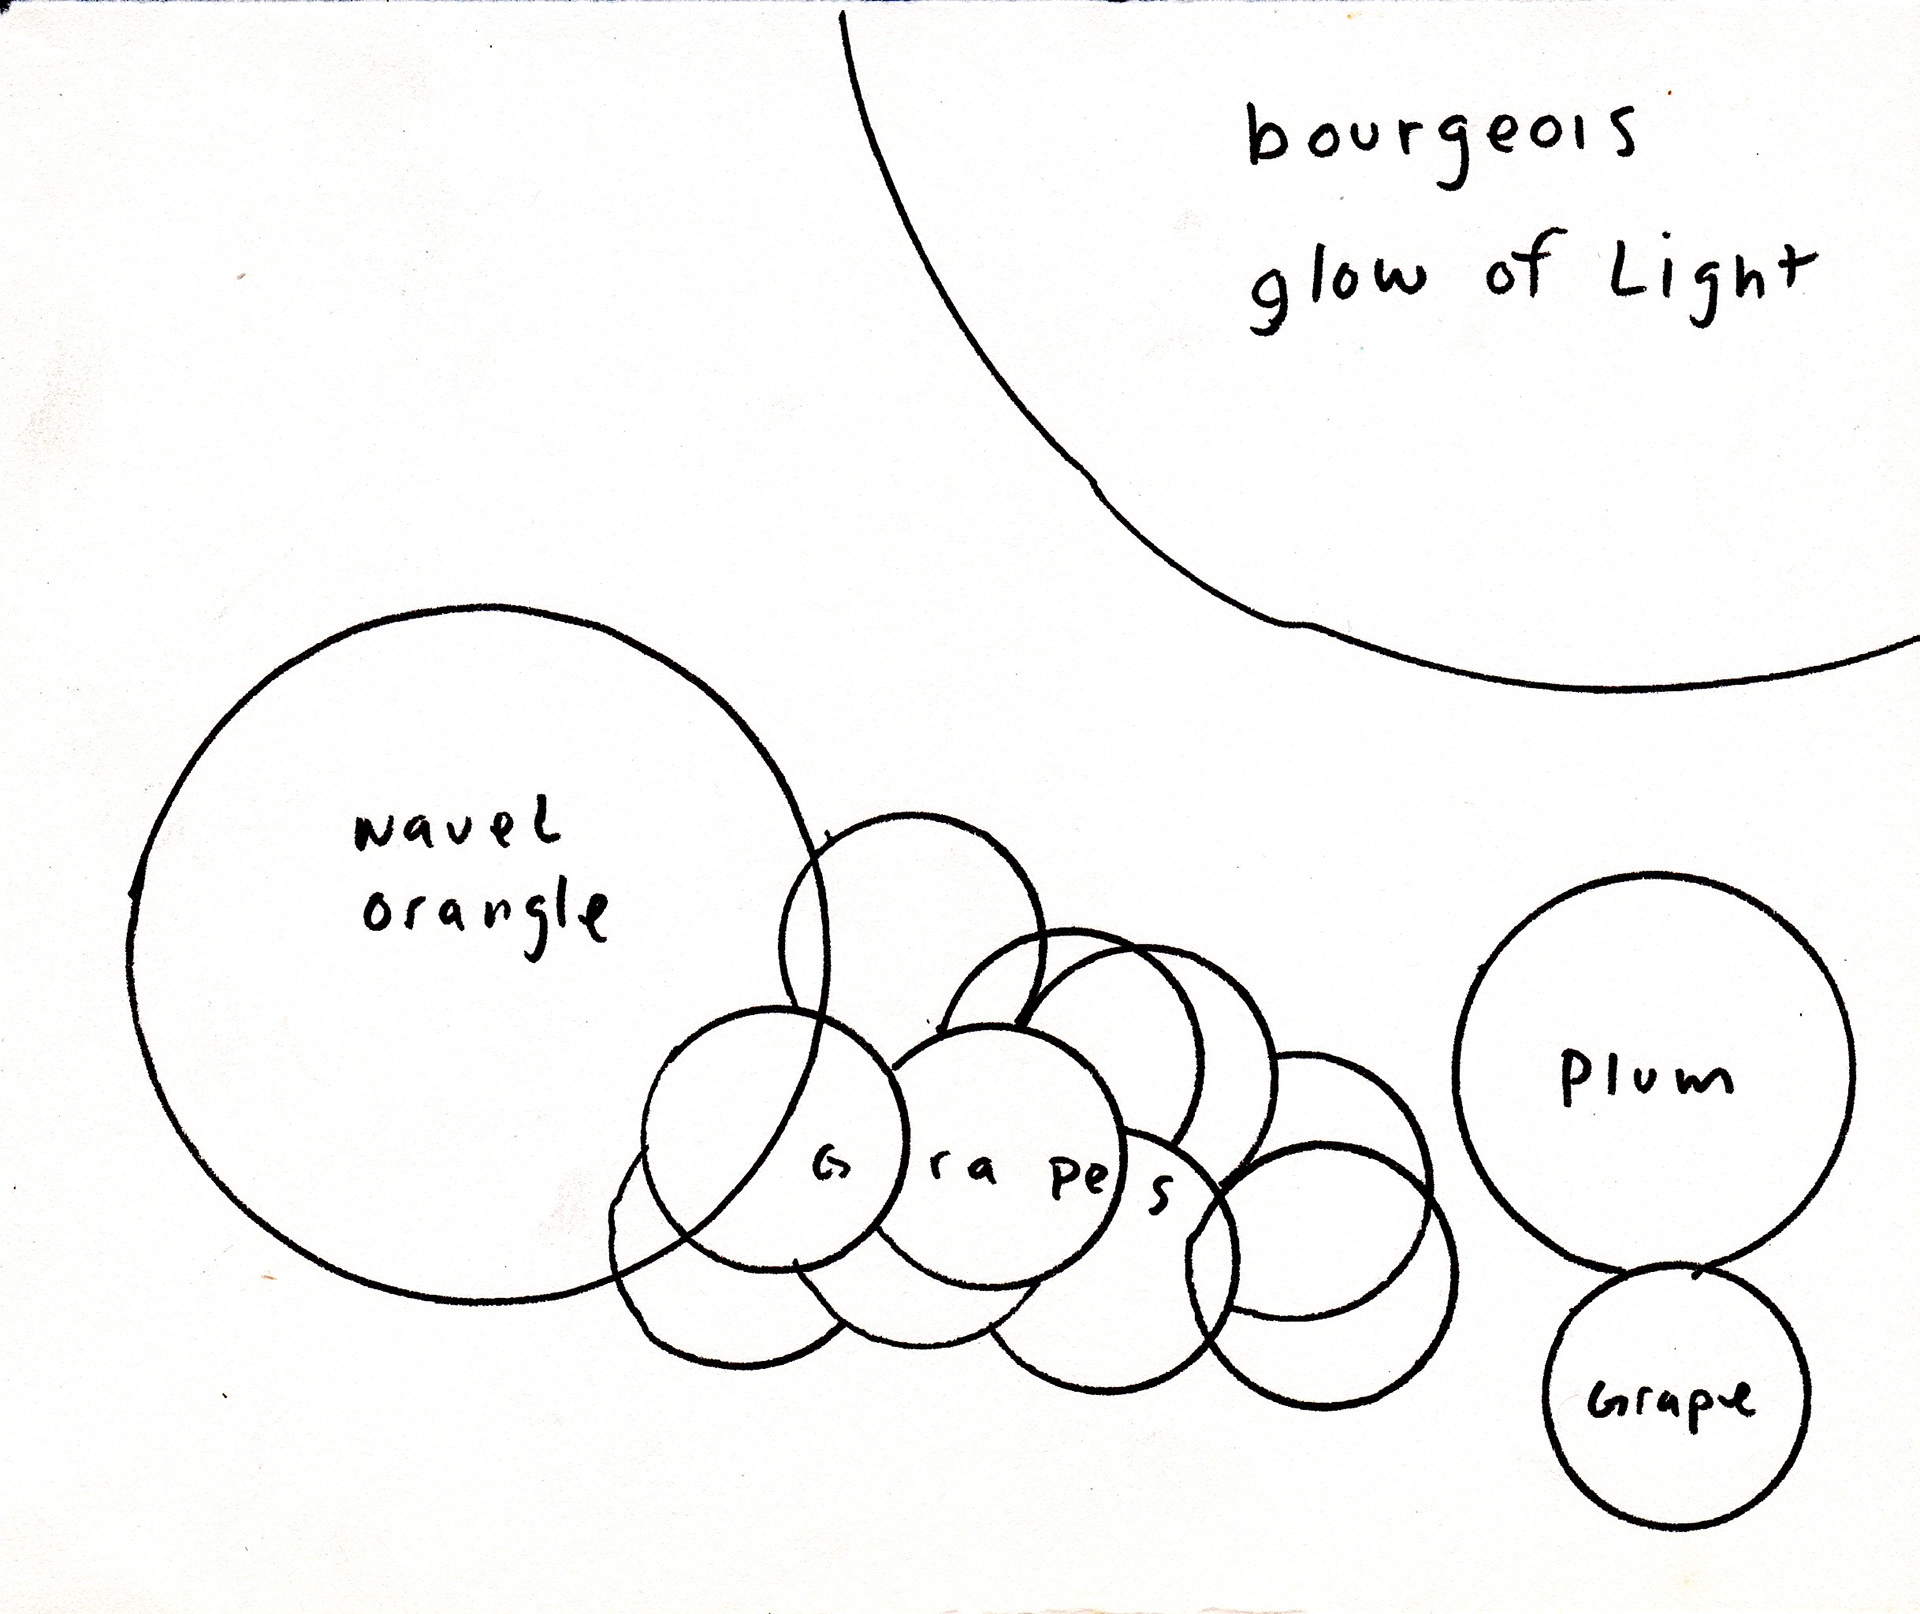 bourgeois
glow of Light
navel
orangle
Grapes
Plum
Grape